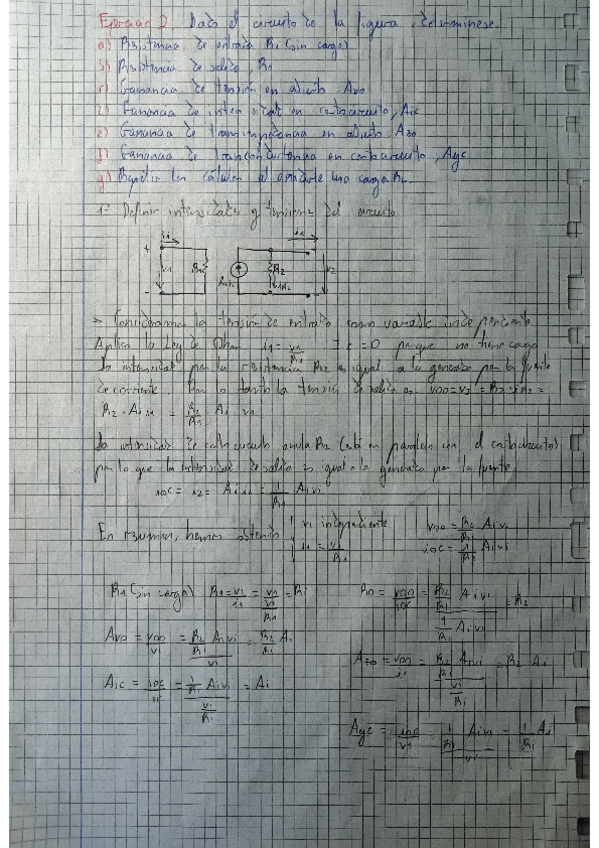 Ejercicio 2 Dado el circuito de la figura, determinese.
a) Resistencia de entrada Ri (sin carga)
b) Resistencia de salida, Ro
c) Ganancia de tensión en abierto, Avo
d) Ganancia de intensidad en cortocircuito, Aic
e) Ganancia de transimpedancia en abierto, Azo
f) Ganancia de transconductancia en cortocircuito, Ayc
g) Repetir los cálculos al añadirle una carga RL.
1º Definir intensidades y tensiones del circuito
i1 i2
+ + 
v1 R1 R2 v2
iR2
- -
> Consideramos la tensión de entrada como variable independiente
Aplico la Ley de Ohm i1 = v1/R1 = 0 porque no tiene carga
La intensidad por la resistencia R2 es igual a la generada por la fuente
de corriente. Por lo tanto la tensión de salida es v00 = v2 = R2 · iR2 =
R2 · Ai i1 = R2/R1 · Ai v1
La intensidad de cortocircuito anula R2 (está en paralelo con el cortocircuito)
por lo que la intensidad de salida es igual a la generada por la fuente.
ioc = i2 = Ai i1 = 1/R1 Ai v1
En resumen, hemos obtenido v1 independiente v00 = R2/R1 Ai v1
i1 = v1/R1 ioc = 1/R1 Ai v1
R1 (sin carga) R1 = v1/i1 = v1/(v1/R1) = R1 Ro = v00/ioc = (R2/R1 Ai v1)/(1/R1 Ai v1) = R2
Avo = v00/v1 = (R2/R1 Ai v1)/v1 = R2/R1 Ai
Azo = v00/i1 = (R2/R1 Ai v1)/(v1/R1) = R2 Ai
Aic = ioc/i1 = (1/R1 Ai v1)/(v1/R1) = Ai
Ayc = ioc/v1 = (1/R1 Ai v1)/v1 = 1/R1 Ai